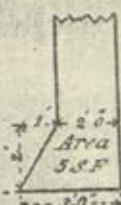 1' 2' 0"
2'
Area
5 S.F.